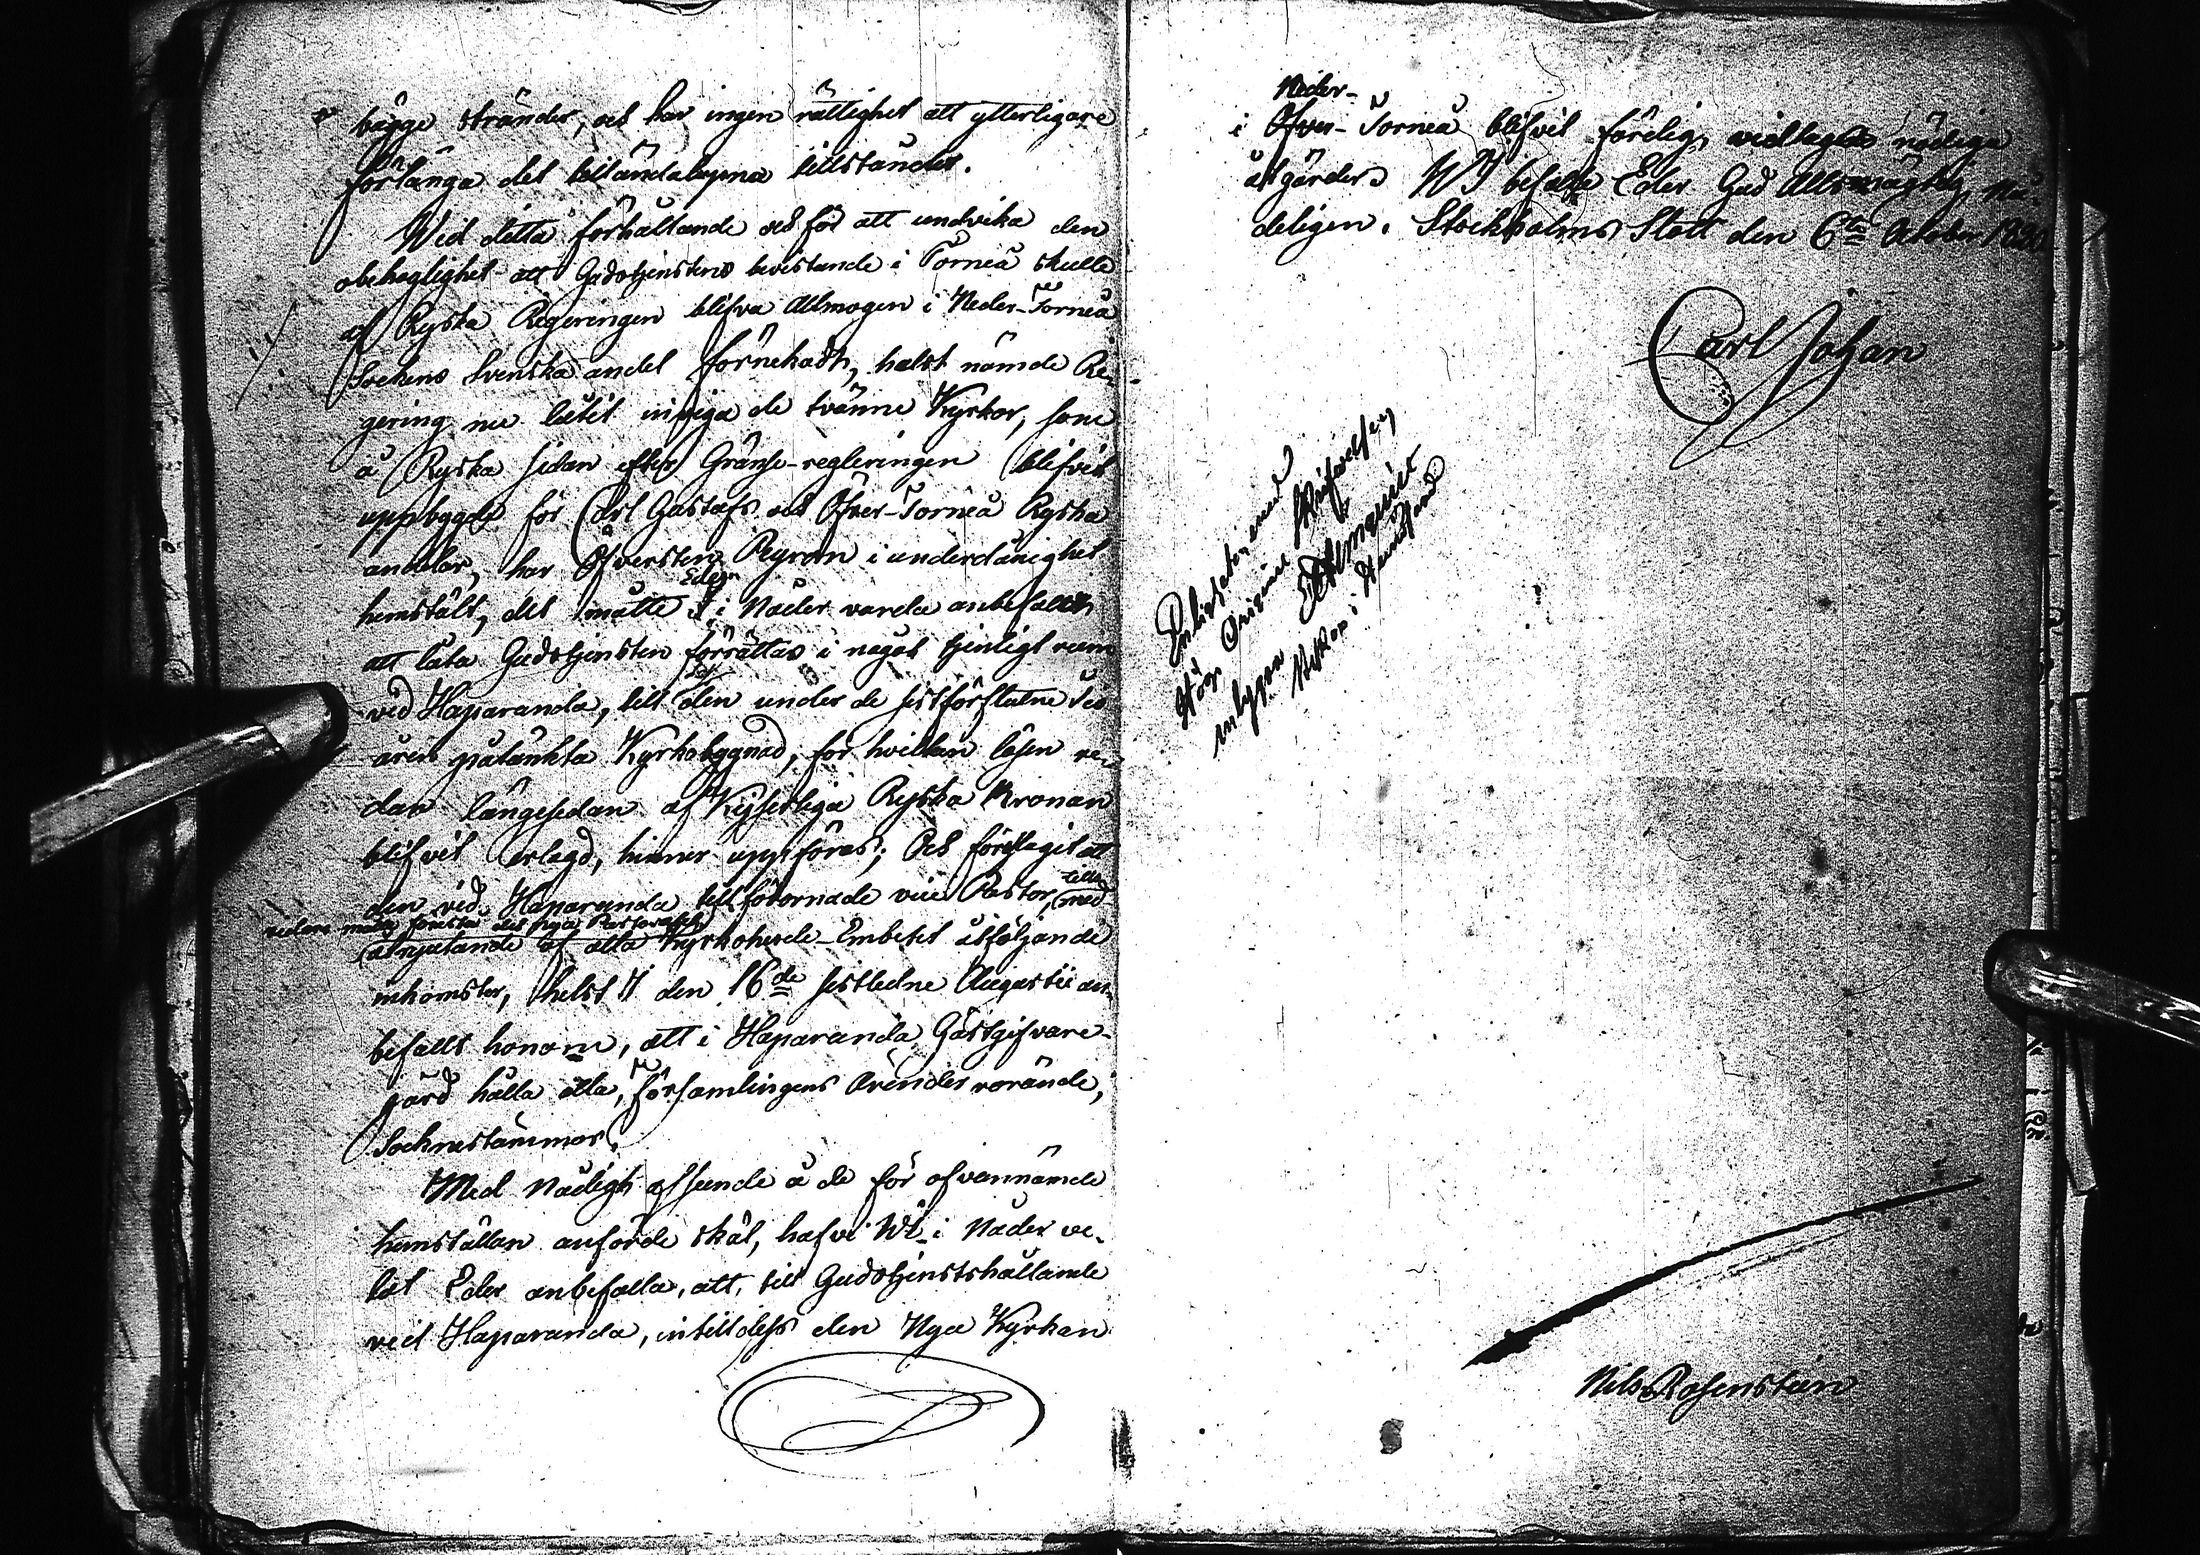 bägge stränder, och har ingen rättighet att ytterligare
förlänga det tillståndet.
Wid detta förhållande och för att undvika den
obehaglighet att Gudstjenstens bevistande i Torneå skulle
af Ryska Regeringen blifva Allmogen i Neder-Torneå
Sockens Svenska andel förnekadt, helst nämde Re-
gering nu låtit inviga de tvänne Kyrkor, som
å Ryska sidan efter Gränse-regleringen blifvit
uppbygde för Carl Gustafs och Öfver-Torneå Ryska
andelar, har Öfversten Peyron i underdånighet
hemstält, det måtte Eder i Nåder varda anbefaldt
att låta Gudstjensten förrättas i något tjenligt rum
vid Haparanda, till dess den under de sistförflutne sex
åren påtänkta Kyrkobyggnad, för hvilken lösen re-
dan längesedan af Kejserliga Ryska Kronan
blifvit erlagd, hinner uppföras; Och föreslagit att
den vid Haparanda till förordnade vice Pastor, med
redan måtte förestå det nya Pastoratet
åtnjutande af alla Kyrkoherde-Embetet åtföljande
inkomster, helst I den 16de sistledne Augusti an-
befallt honom, att i Haparanda Gästgifvare-
gård hålla alla, församlingens ärender rörande,
Socknestämmor.
Med Nådigt afseende å de för ofvannämde
hemställan anförde skäl, hafve Wi i Nåder ve-
lat Eder anbefalla, att, till Gudstjenstshållande
vid Haparanda, intilldess den Nya Kyrkan
Neder-
i Öfver-Torneå blifvit färdig, vidtaga nödiga
åtgärder. WI befalle Eder Gud Allsmägtig Nå-
deligen. Stockholms Slott den 6te October
Carl Johan
Nils Rosenstein
Enligheten med
Höga Original Skrifvelsen
intygar